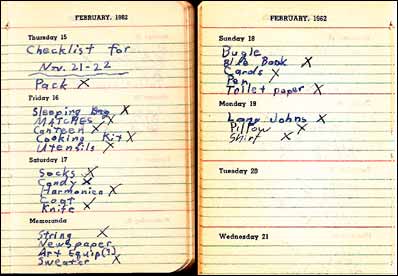 FEBRUARY, 1962
Thursday 15
Checklist for
Nov. 21-22
Pack X
Friday 16
Sleeping Bag X
MATCHES X
Canteen X
Cooking Kit X
Utensils X
Saturday 17
Socks X
Candy X
Harmonica X
Coat X
Knife X
Memoranda
String X
Newspaper
Art Equip(?)
Sweater X
FEBRUARY, 1962
Sunday 18
Bugle
Blue Book X
Cards X
Pen
Toilet paper X
Monday 19
Long Johns X
Pillow X
Shirt X
Tuesday 20
Wednesday 21